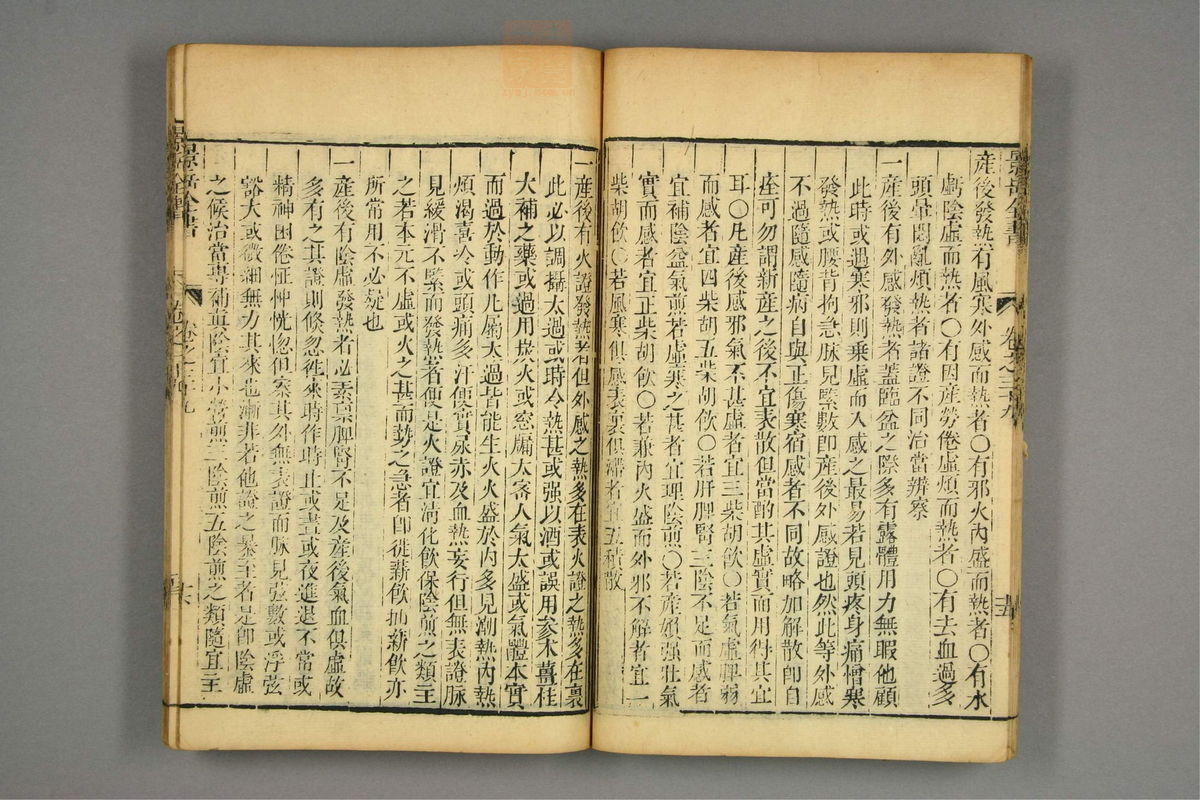 景岳全書
卷之三十九
産後發熱有風寒外感而熱者○有邪火内盛而熱者○有水
虧陰虛而熱者○有因産勞倦虛煩而熱者○有去血過多
頭暈悶亂煩熱者諸證不同治當辨察
一産後有外感發熱者蓋臨盆之際多有露體用力無暇他顧
此時或遇寒邪則乗虛而入感之最易若見頭疼身痛憎寒
發熱或腰背拘急脉見緊數即産後外感證也然此等外感
不過隨感隨病自與正傷寒宿感者不同故略加解散即自
痊可勿謂新産之後不宜表散但當酌其虛實而用得其宜
耳○凡産後感邪氣不甚虛者宜三柴胡飲○若氣虛脾弱
而感者宜四柴胡五柴胡飲○若肝脾腎三陰不足而感者
宜補陰益氣煎若虛寒之甚者宜理陰煎○若産婦强壯氣
實而感者宜正柴胡飲○若兼内火盛而外邪不解者宜一
柴胡飲○若風寒俱感表裏俱滯者宜五積散
一産後有火證發熱者但外感之熱多在表火證之熱多在裏
此必以調攝太過或時令熱甚或强以酒或誤用參术薑桂
大補之藥或過用炭火或窓牖太宻人氣太盛或氣體本實
而過於動作凡屬太過皆能生火火盛於内多見潮熱内熱
煩渴喜冷或頭痛多汗便實尿赤及血熱妄行但無表證脉
見緩滑不緊而發熱者便是火證宜清化飲保陰煎之類主
之若本元不虛或火之甚而勢之急者即徙薪飲抽薪飲亦
所常用不必疑也
一産後有陰虛發熱者必素禀脾腎不足及産後氣血俱虛故
多有之其證則倐忽徃來時作時止或晝或夜進退不常或
精神困倦怔忡恍惚但察其外無表證而脉見弦數或浮弦
豁大或微細無力其來也漸非若他證之暴至者是即陰虛
之候治當專補眞陰宜小營煎三陰煎五陰煎之類隨宜主
景岳全書